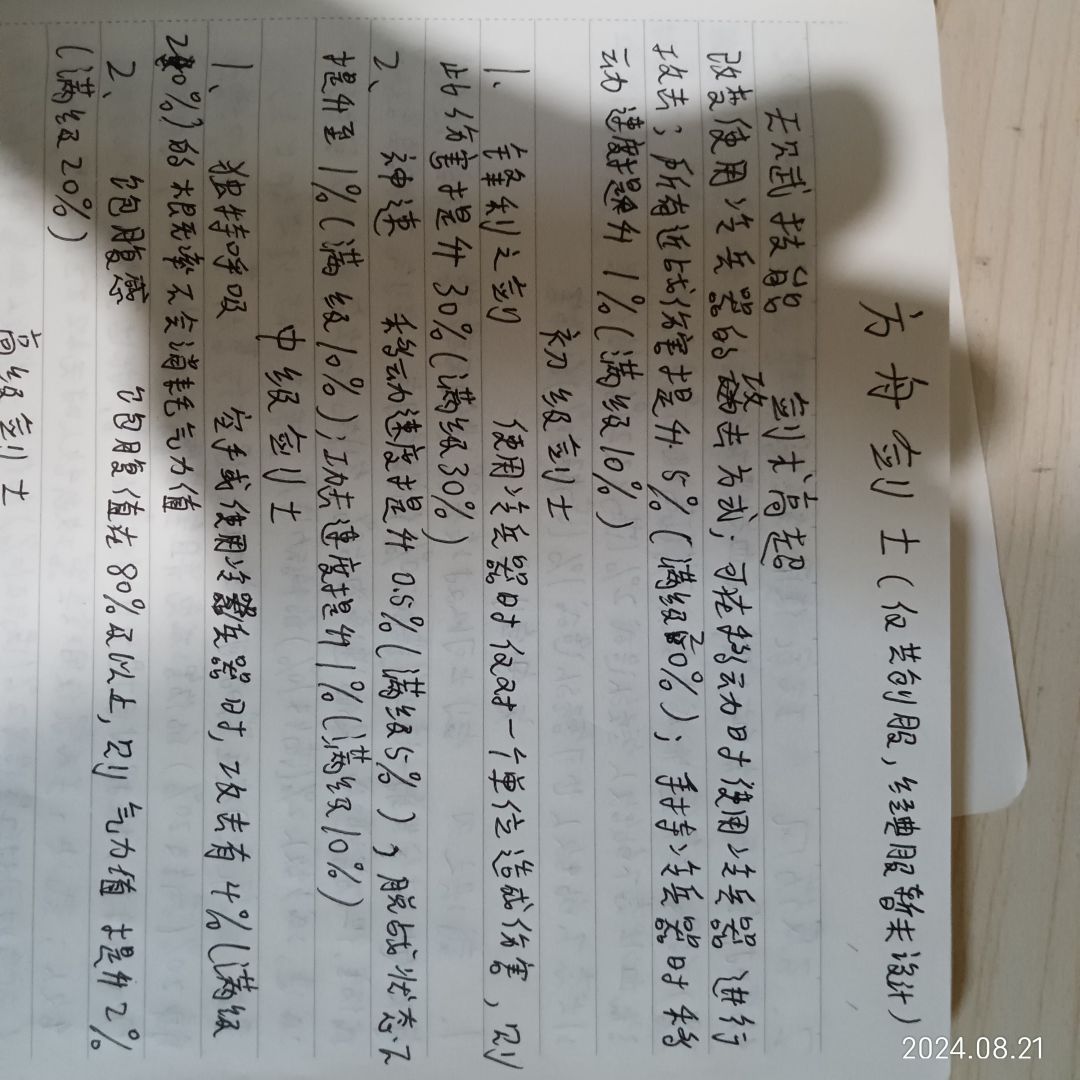 方舟剑士(仅共创服,经典服暂未设计)
无冗武技能 剑术高超
改变使用冷兵器的攻击方式;可在移动时使用冷兵器进行
攻击;所有近战伤害提升5%(满级20%);手持冷兵器时移
动速度提升1%(满级10%)
初级剑士
1、锋利之剑 使用冷兵器时仅对一个单位造成伤害,则
此伤害提升30%(满级30%)
2、神速 移动速度提升0.5%(满级5%),脱战状态下
提升至1%(满级10%);攻击速度提升1%(满级10%)
中级剑士
1、独特呼吸 空手或使用冷兵器时,攻击有4%(满级
20%)的概率不会消耗气力值
2、饱腹感 饱腹值在80%及以上,则气力值提升2%
(满级20%)
高级剑士
2024.08.21